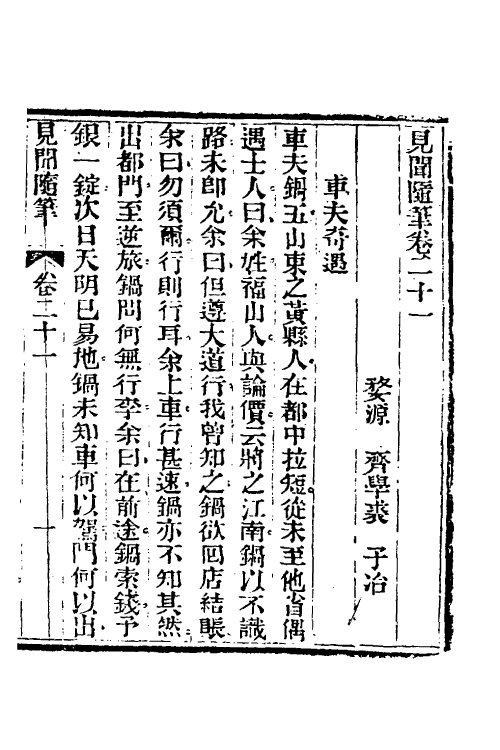 見聞隨筆卷二十一
婺源　齊學裘　子冶
車夫奇遇
車夫鍋五山東之黃縣人在都中拉短從未至他省偶
遇士人曰余姓福山人與論價云將之江南鍋以不識
路未即允余曰但遵大道行我曾知之鍋欲回店結賬
余曰勿須爾行則行耳余上車行甚速鍋亦不知其然
出都門至逆旅鍋問何無行李余曰在前途鍋索錢予
銀一錠次日天明已易地鍋未知車何以駕門何以出
見聞隨筆　卷二十一　一